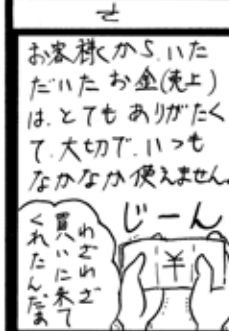 さ
お客様から、いた
だいたお金(売上)
は、とてもありがたく
て、大切で、いつも
なかなか使えません。
じーん
¥
わざわざ
買いに来て
くれたんだぁ